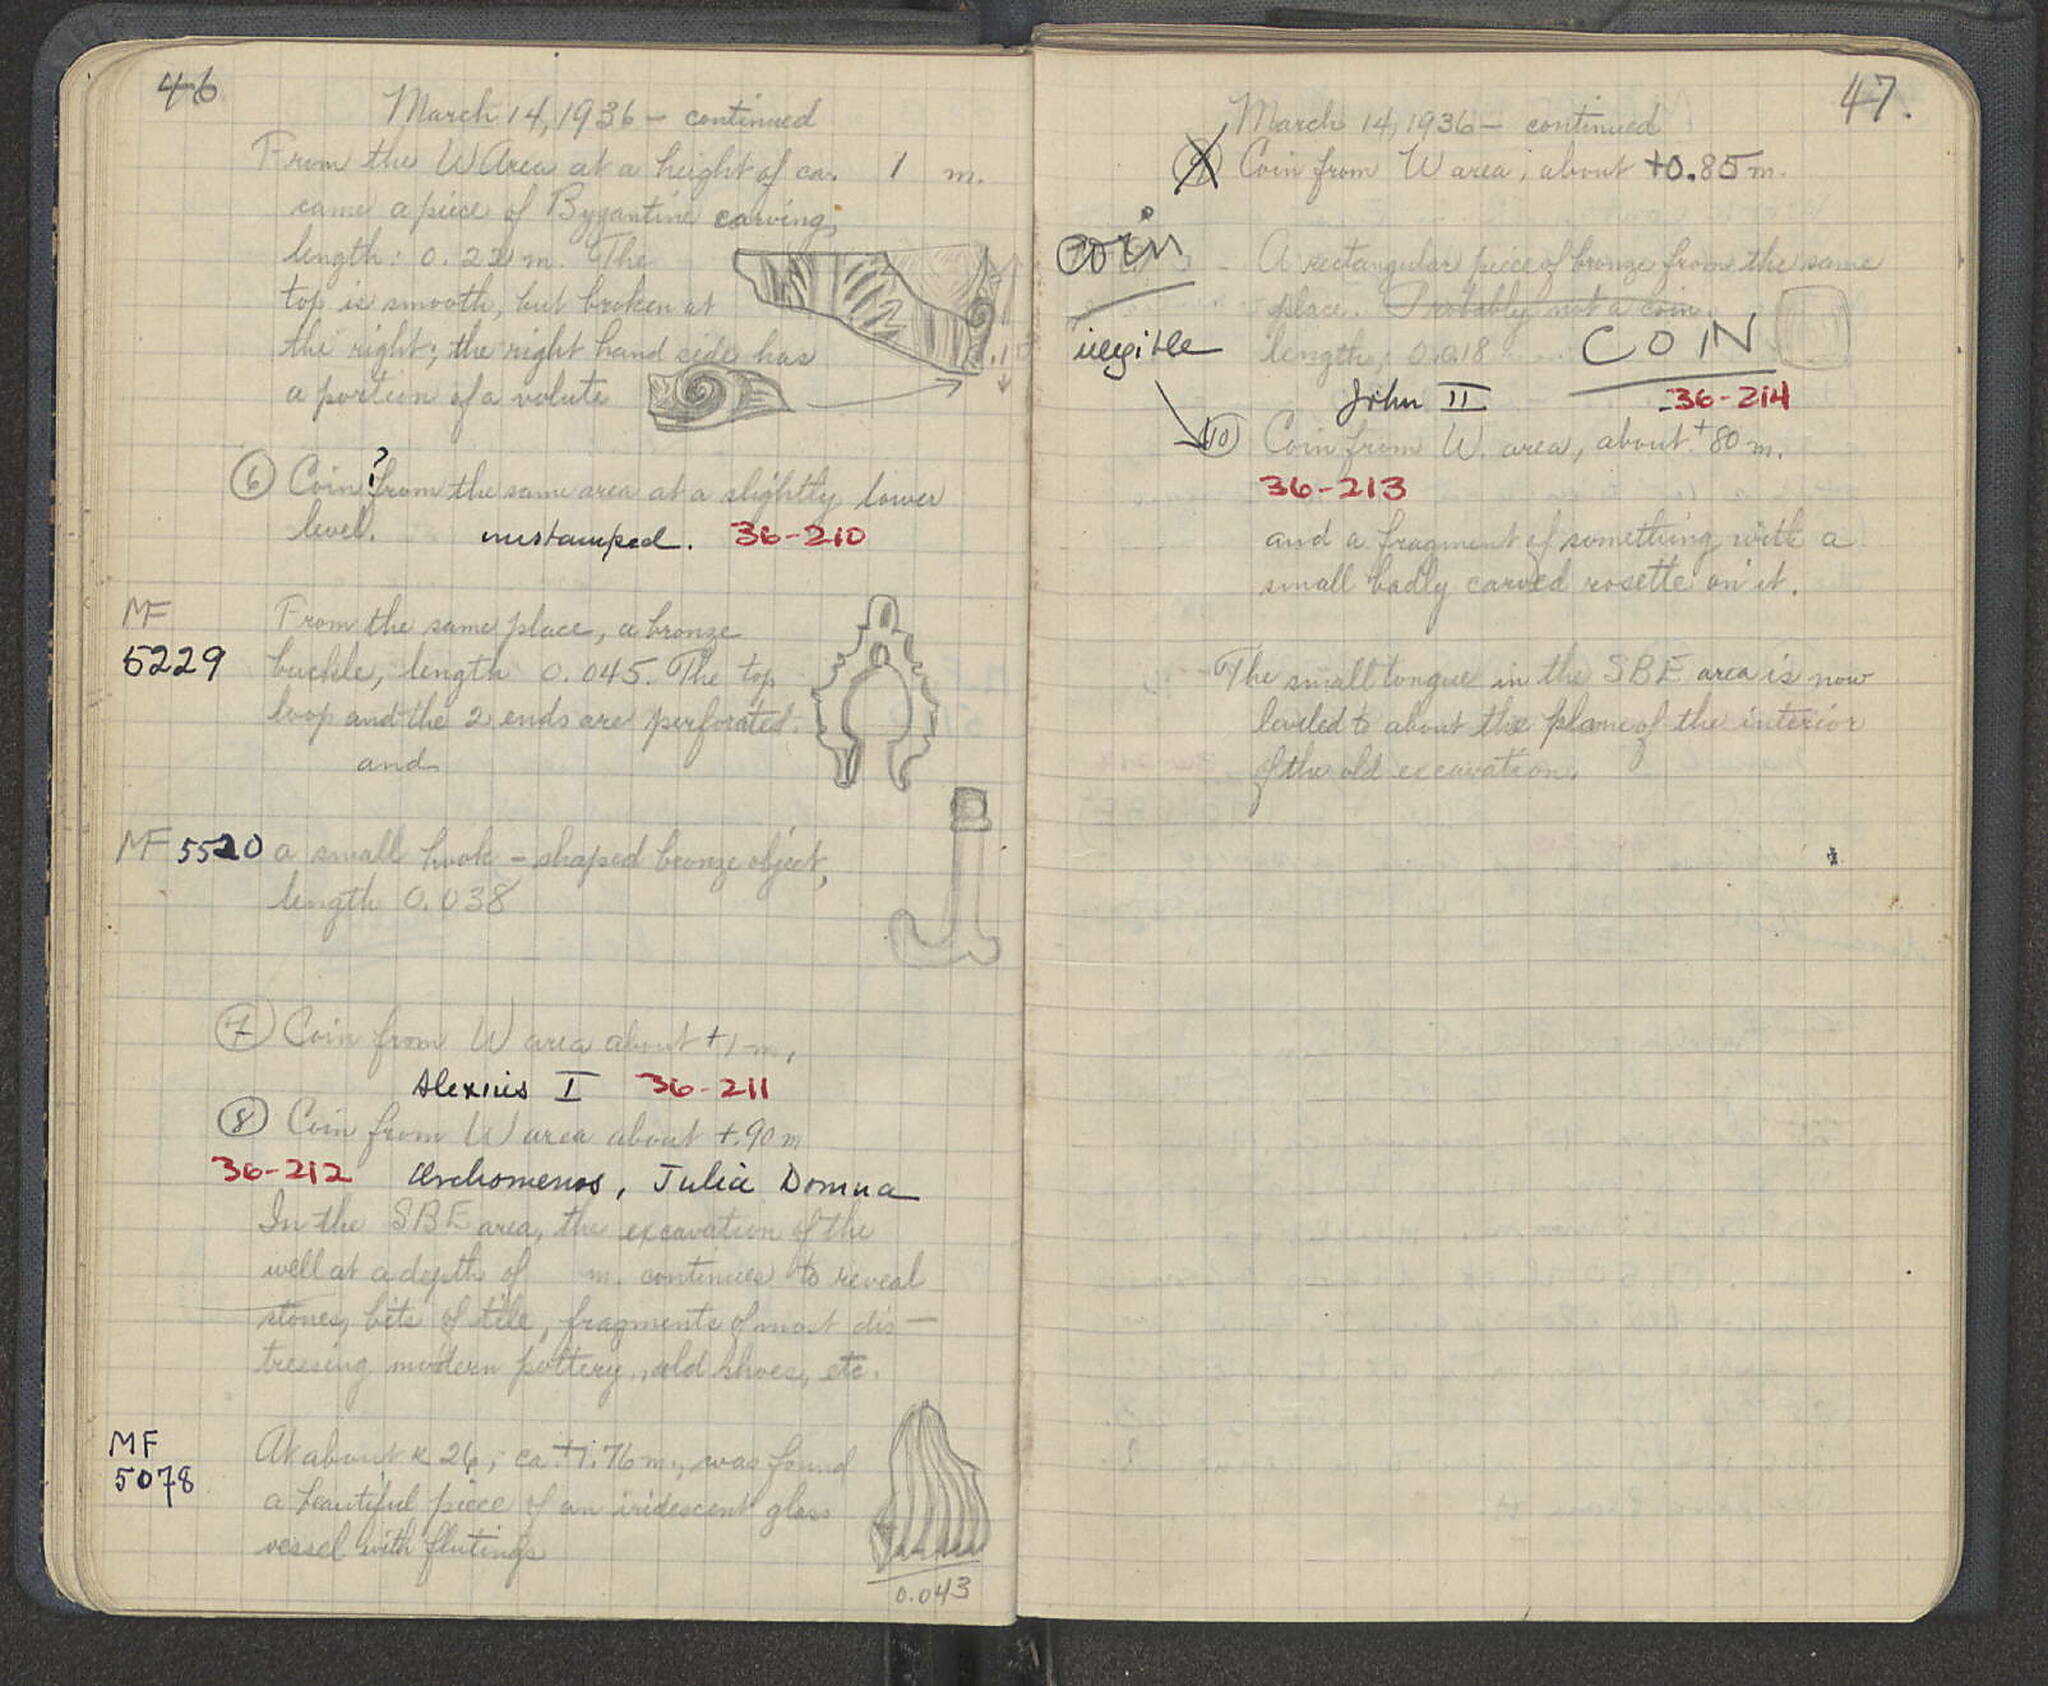 46
March 14, 1936 — continued
From the W Area at a height of ca. 1 m.
came a piece of Byzantine carving,
length: 0.22 m. The
top is smooth, but broken at
the right; the right hand side has
a portion of a volute
⑥ Coin? from the same area at a slightly lower
level. unstamped. 36-210
MF
5229
From the same place, a bronze
buckle, length 0.045. The top
loop and the 2 ends are perforated.
and
MF 5520 a small hook-shaped bronze object,
length 0.038
⑦ Coin from W area about +1 m.
Alexius I 36-211
⑧ Coin from W area about +.90 m
36-212 Orchomenos, Julia Domna
In the SBE area, the excavation of the
well at a depth of m. continues to reveal
stones, bits of tile, fragments of most dis-
tressing modern pottery, old shoes, etc.
MF
5078
At about x 26, ca +1.76 m., was found
a beautiful piece of an iridescent glass
vessel with flutings
0.043
47.
March 14, 1936 — continued
⑨ Coin from W area, about +0.85 m.
coin
illegible
A rectangular piece of bronze from the same
place. Probably not a coin.
length, 0.018 COIN
John II 36-214
⑩ Coin from W. area, about +80 m.
36-213
and a fragment of something with a
small badly carved rosette on it.
The small tongue in the SBE area is now
leveled to about the plane of the interior
of the old excavation.